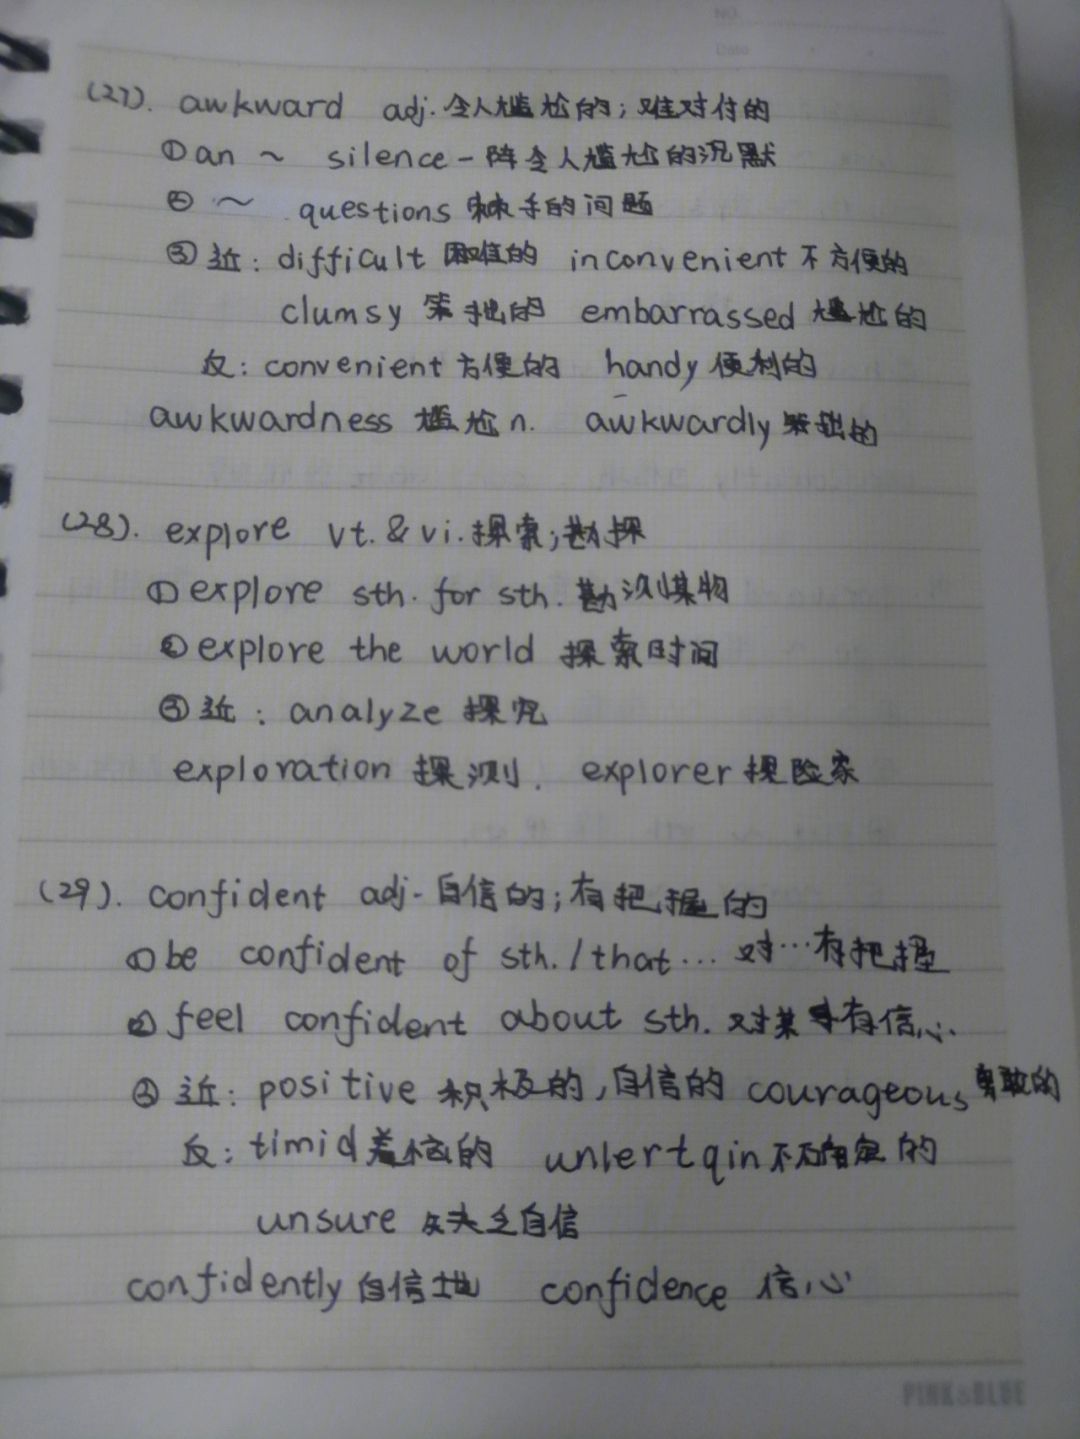 NO.
Date
(27). awkward adj. 令人尴尬的；难对付的
①an ~ silence 一阵令人尴尬的沉默
② ~ questions 棘手的问题
③近：difficult 困难的 inconvenient 不方便的
clumsy 笨拙的 embarrassed 尴尬的
反：convenient 方便的 handy 便利的
awkwardness 尴尬 n. awkwardly 笨拙的
(28). explore vt. & vi. 探索；勘探
① explore sth. for sth. 勘测某物
② explore the world 探索时间
③ 近：analyze 探究
exploration 探测. explorer 探险家
(29). confident adj. 自信的；有把握的
① be confident of sth. / that… 对…有把握
② feel confident about sth. 对某事有信心.
③ 近：positive 积极的，自信的 courageous 勇敢的
反：timid 羞怯的 unlertqin 不确定的
unsure 缺乏自信
confidently 自信地 confidence 信心
PINK&BLUE